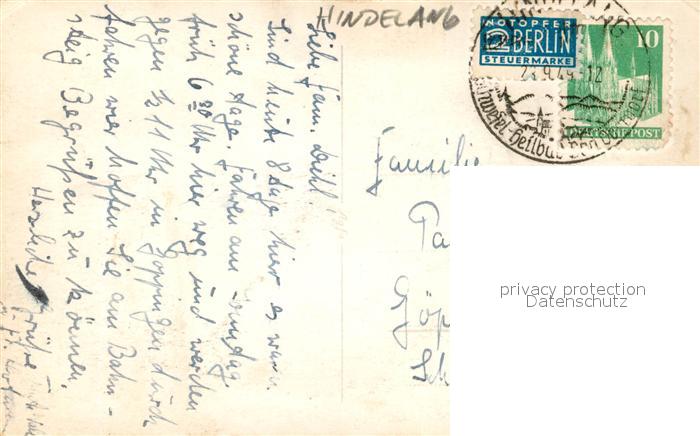 HINDELANG
NOTOPFER
2 BERLIN
STEUERMARKE
10
DEUTSCHE POST
Liebe Fam. Diehl!
Sind heute 8 Tage hier es waren
schöne Tage. Fahren am
früh 6 30 Uhr hier weg und werden
gegen ½ 11 Uhr in Göppingen durch
fahren wir hoffen Sie am Bahn-
steig Begrüßen zu können.
Herzliche Grüße
Familie
Gö
privacy protection
Datenschutz